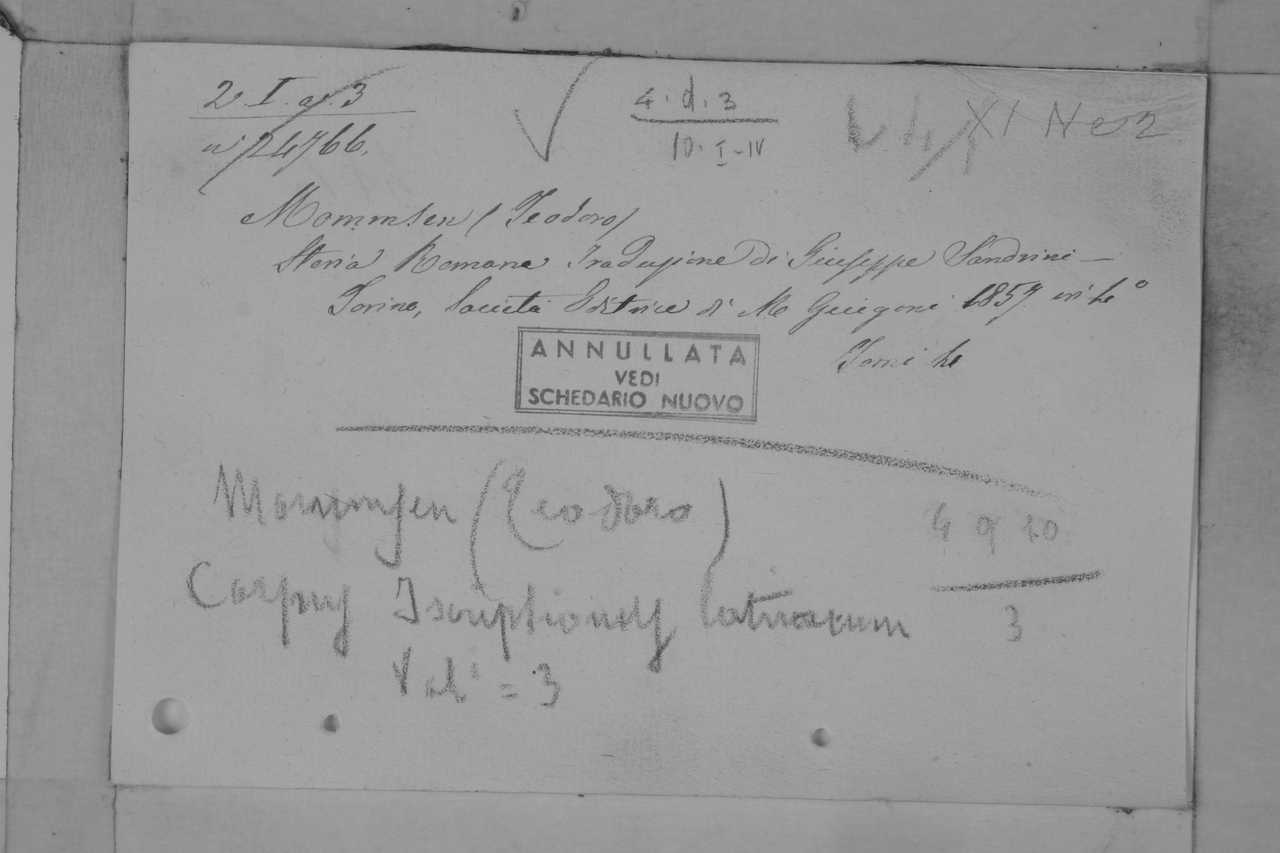 2. I. a. 3
n 24766.
4. d. 3
10. I-IV
XI N e 2
Mommsen (Teodoro)
Storia Romana Traduzione di Giuseppe Sandrini —
Torino, Società Editrice di M Guigoni 1857 in
Tomi
ANNULLATA
VEDI
SCHEDARIO NUOVO
Mommsen (Teodoro)
4 q 20
3
Corpus Iscriptiones latinarum
Vol = 3